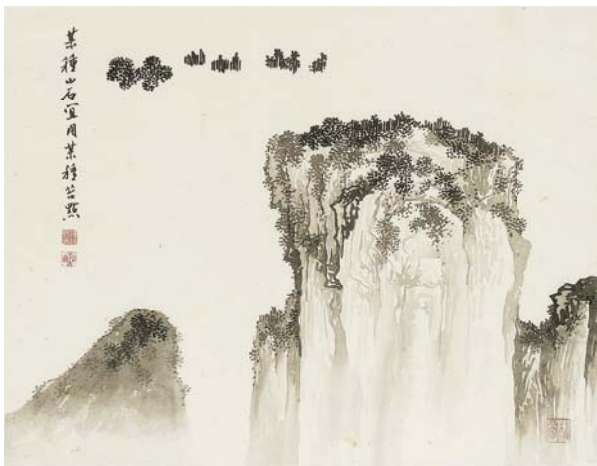 某種山石宜用某種苔點